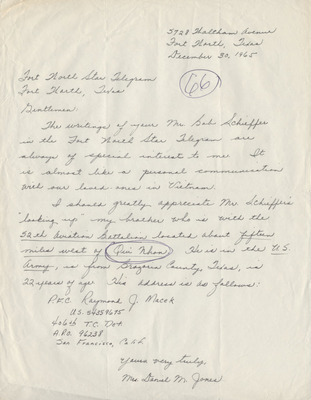 5728 Waltham Avenue
Fort Worth, Texas
December 30, 1965
Fort Worth Star Telegram
Fort Worth, Texas
66
Gentlemen:
The writings of your Mr. Bob Schieffer
in the Fort Worth Star Telegram are
always of special interest to me. It
is almost like a personal communication
with our loved ones in Vietnam.
I should greatly appreciate Mr. Schieffer's
looking up my brother who is with the
52th Aviation Battalion located about fifteen
miles west of Qui Nhon. He is in the U.S.
Army, is from Brazoria County, Texas, is
22 years of age. His address is as follows:
P.F.C. Raymond J. Macek
U.S. 54359695
406th T.C. Det
A.P.O. 96238
San Francisco, Calif.
Yours very truly,
Mrs. Daniel M. Jones